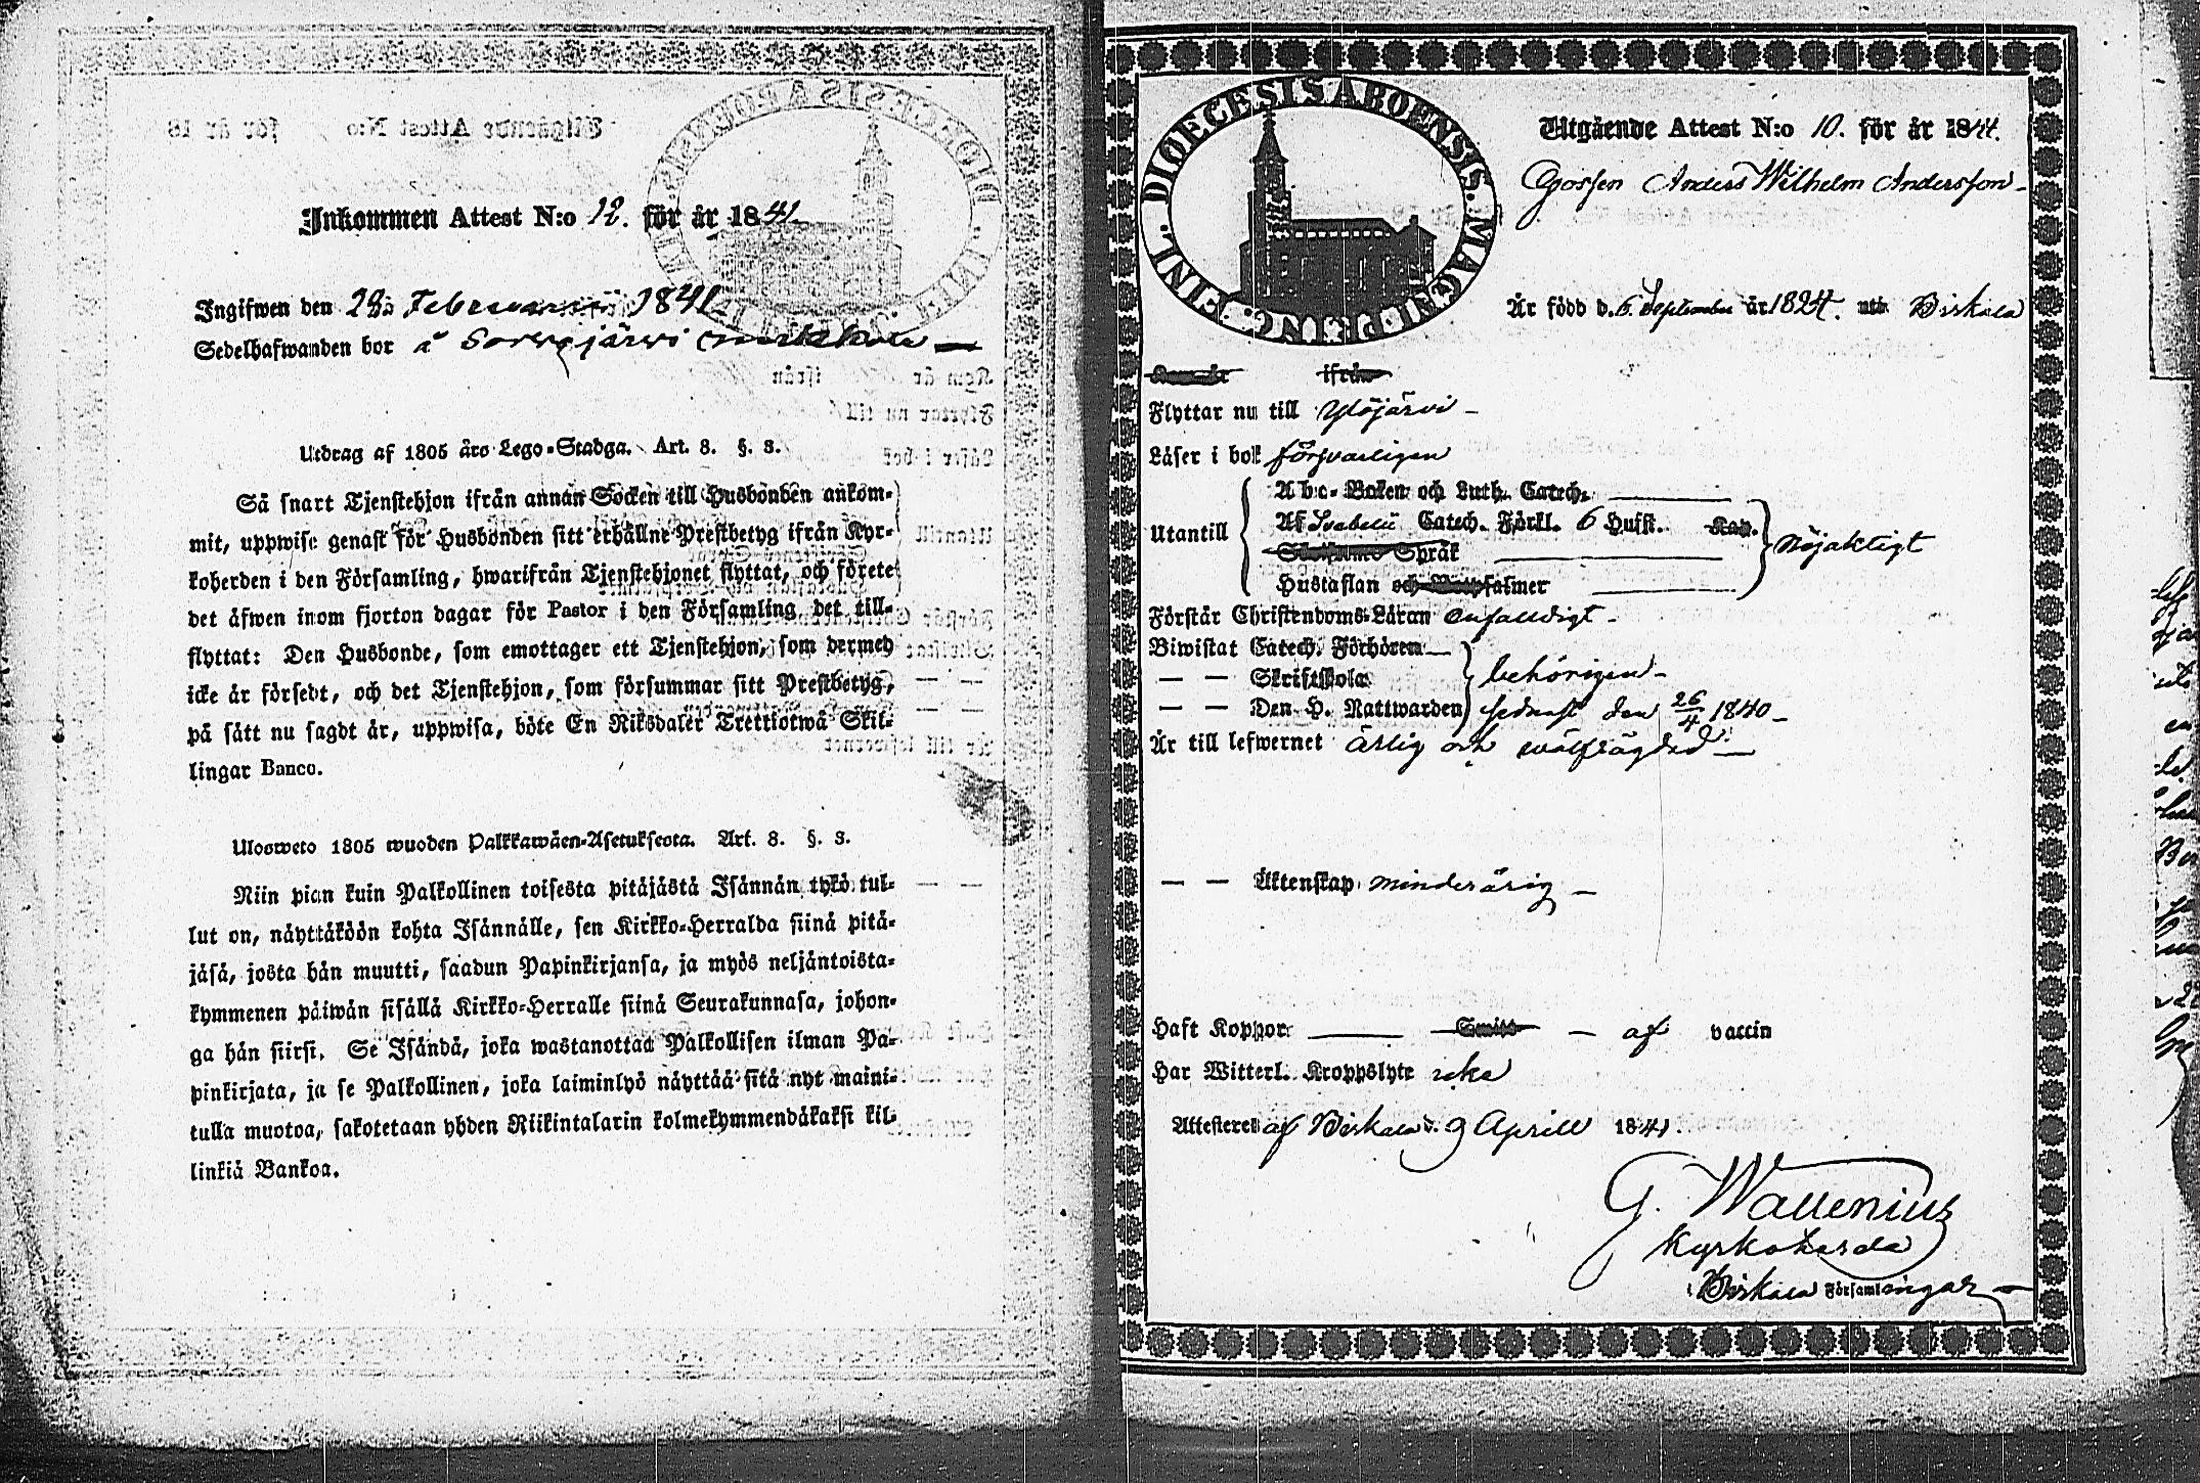 Inkommen Attest N:o 12. för år 1841.
Ingifwen den 28 Februarii 1841
Sedelhafwanden bor å
Utdrag af 1805 års Lego-Stadga. Art. 8. §. 3.
Så snart Tjenstehjon ifrån annan Socken till Husbonden ankom-
mit, uppwise genast för Husbonden sitt erhållne Prestbetyg ifrån Kyr-
koherden i den Församling, hwarifrån Tjenstehjonet flyttat, och förete
det äfwen inom fjorton dagar för Pastor i den Församling det till-
flyttat: Den Husbonde, som emottager ett Tjenstehjon, som dermed
icke är försedt, och det Tjenstehjon, som försummar sitt Prestbetyg,
på sätt nu sagdt är, uppwisa, böte En Riksdaler Trettiotwå Skil-
lingar Banco.
Ulosweto 1805 wuoden Palkkawäen-Asetuksesta. Art. 8. §. 3.
Niin pian kuin Palkollinen toisesta pitäjästä Isännän tykö tul-
lut on, näyttäköön kohta Isännälle, sen Kirkko-Herralda siinä pitä-
jäsä, josta hän muutti, saadun Papinkirjansa, ja myös neljäntoista-
kymmenen päiwän sisällä Kirkko-Herralle siinä Seurakunnasa, johon-
ga hän siirsi. Se Isändä, joka wastanottaa Palkollisen ilman Pa-
pinkirjata, ja se Palkollinen, joka laiminlyö näyttää sitä nyt maini-
tulla muotoa, sakotetaan yhden Riikintalarin kolmekymmendäkaksi kil-
linkiä Bankoa.
DIOECESIS ABOENSIS. MAGNI PRINC. FINL.
Utgående Attest N:o 10. för år 1841.
Gossen Anders Wilhelm Andersson
Är född d. 6 September år 1824. uti Birkala
Kom år ifrån
Flyttar nu till Ylöjärvi
Läser i bok försvarligen
Utantill
Abc-Boken och Luth. Catech.
Af Svebelii Catech. Förkl. 6 Hufst. Kap.
Språk
Hustaflan och Botpsalmer
nöjaktigt
Förstår Christendoms-Läran enfaldigt
Biwistat Catech. Förhören
— — Skriftskola behörigen
— — Den H. Nattwarden sednast den 26/4 1840
Är till lefwernet ärlig och wälfrägdad
— — Äktenskap minderårig
Haft Koppor Smitt af vaccin
Har Witterl. Kroppslyte icke
Attesteres af Birkala d. 9 Aprill 1841.
G. Wallenius
Kyrkoherde
i Birkala Församlingar